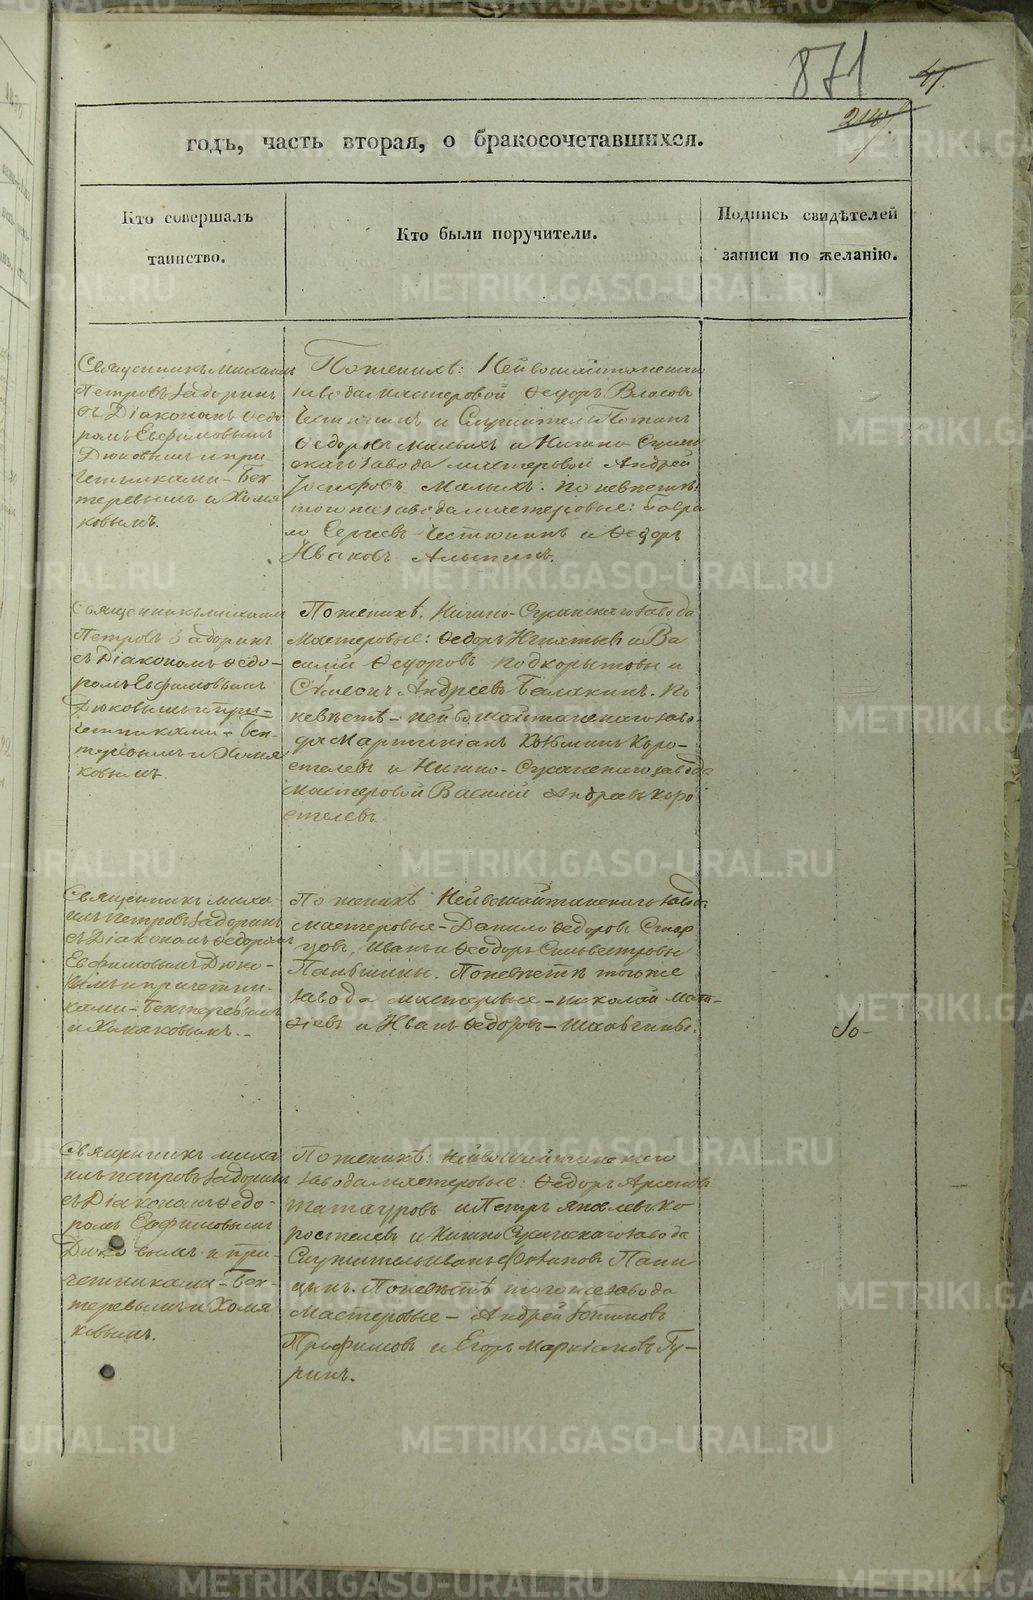 871
41.
210
годъ, часть вторая, о бракосочетавшихся.
Кто совершалъ
таинство.
Кто были поручители.
Подпись свидѣтелей
записи по желанію.
Священникъ Михаилъ
Петровъ Задоринъ
съ Діакономъ Ѳедо
ромъ Евѳимовымъ
Дюковымъ и при-
четниками - Бех
теревымъ и Хомя
ковымъ.
По женихѣ: Нейвошайтанскаго
завода мастеровой Ѳедоръ Власовъ
и Служитель Потапъ
Ѳедоровъ Малыхъ и Нижно Сусан
скаго завода мастеровой Андрей
Іосифовъ Малыхъ. По невѣстѣ:
того же завода мастеровые: Гаври
ло Сергѣевъ и Ѳедоръ
Ивановъ
Священникъ Михаилъ
Петровъ Задоринъ
съ Діакономъ Ѳедо-
ромъ Евѳимовымъ
Дюковымъ и при-
четниками - Бех-
теревымъ и Хомя
ковымъ
По женихѣ. Нижно-Сусанскаго завода
Мастеровые: Ѳедоръ Игнатьевъ и Ва
силій Ѳедоровъ Подкорытовы и
Сѵмеонъ Андреевъ Балакинъ. По
невѣстѣ - Нейвошайтанскаго заво-
да Мартиніанъ Козьминъ Коро-
стелевъ и Нижно-Сусанскаго завода
Мастеровой Василій Андреевъ Коро
стелевъ
Священникъ Миха
илъ Петровъ Задоринъ
съ Діакономъ Ѳедоромъ
Евфимовымъ Дюко-
вымъ и причетни-
ками - Бехтеревымъ
и Хомяковымъ.
По женихѣ Нейвошайтанскаго завода
мастеровые - Данило Ѳедоровъ
Иванъ и Ѳеодоръ Сильвестровы
Паньшины. По невѣстѣ того же
завода мастеровые - Николай Мат-
ѳіевъ и Иванъ Ѳедоровъ -
Священникъ Миха
илъ Петровъ Задоринъ
съ Діакономъ Ѳедо-
ромъ Евфимовымъ
Дюковымъ и при-
четниками - Бех-
теревымъ и Хомя
ковымъ.
По женихѣ: Нейвошайтанскаго
завода мастеровые: Ѳедоръ Арсеновъ
Татауровъ и Петръ Яковлевъ Ко
ростелевъ и Нижно Сусанскаго завода
Служитель Иванъ Фотиновъ Пани
цынъ. По невѣстѣ того же завода
Мастеровые - Андрей
Трофимовъ и Егоръ Маркіановъ Гу-
ринъ.